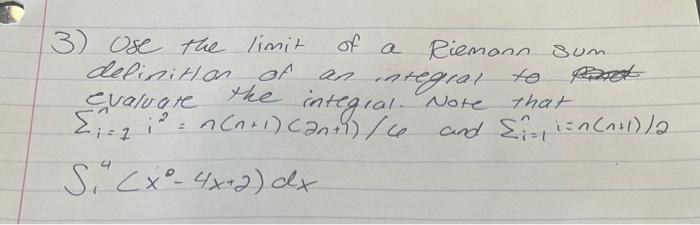 3) Use the limit of a Riemann sum
definition of an integral to
evaluate the integral. Note that
Σⁿᵢ₌₁ i² = n(n+1)(2n+1)/6 and Σⁿᵢ₌₁ i=n(n+1)/2
∫₁⁴ (x²-4x+2)dx